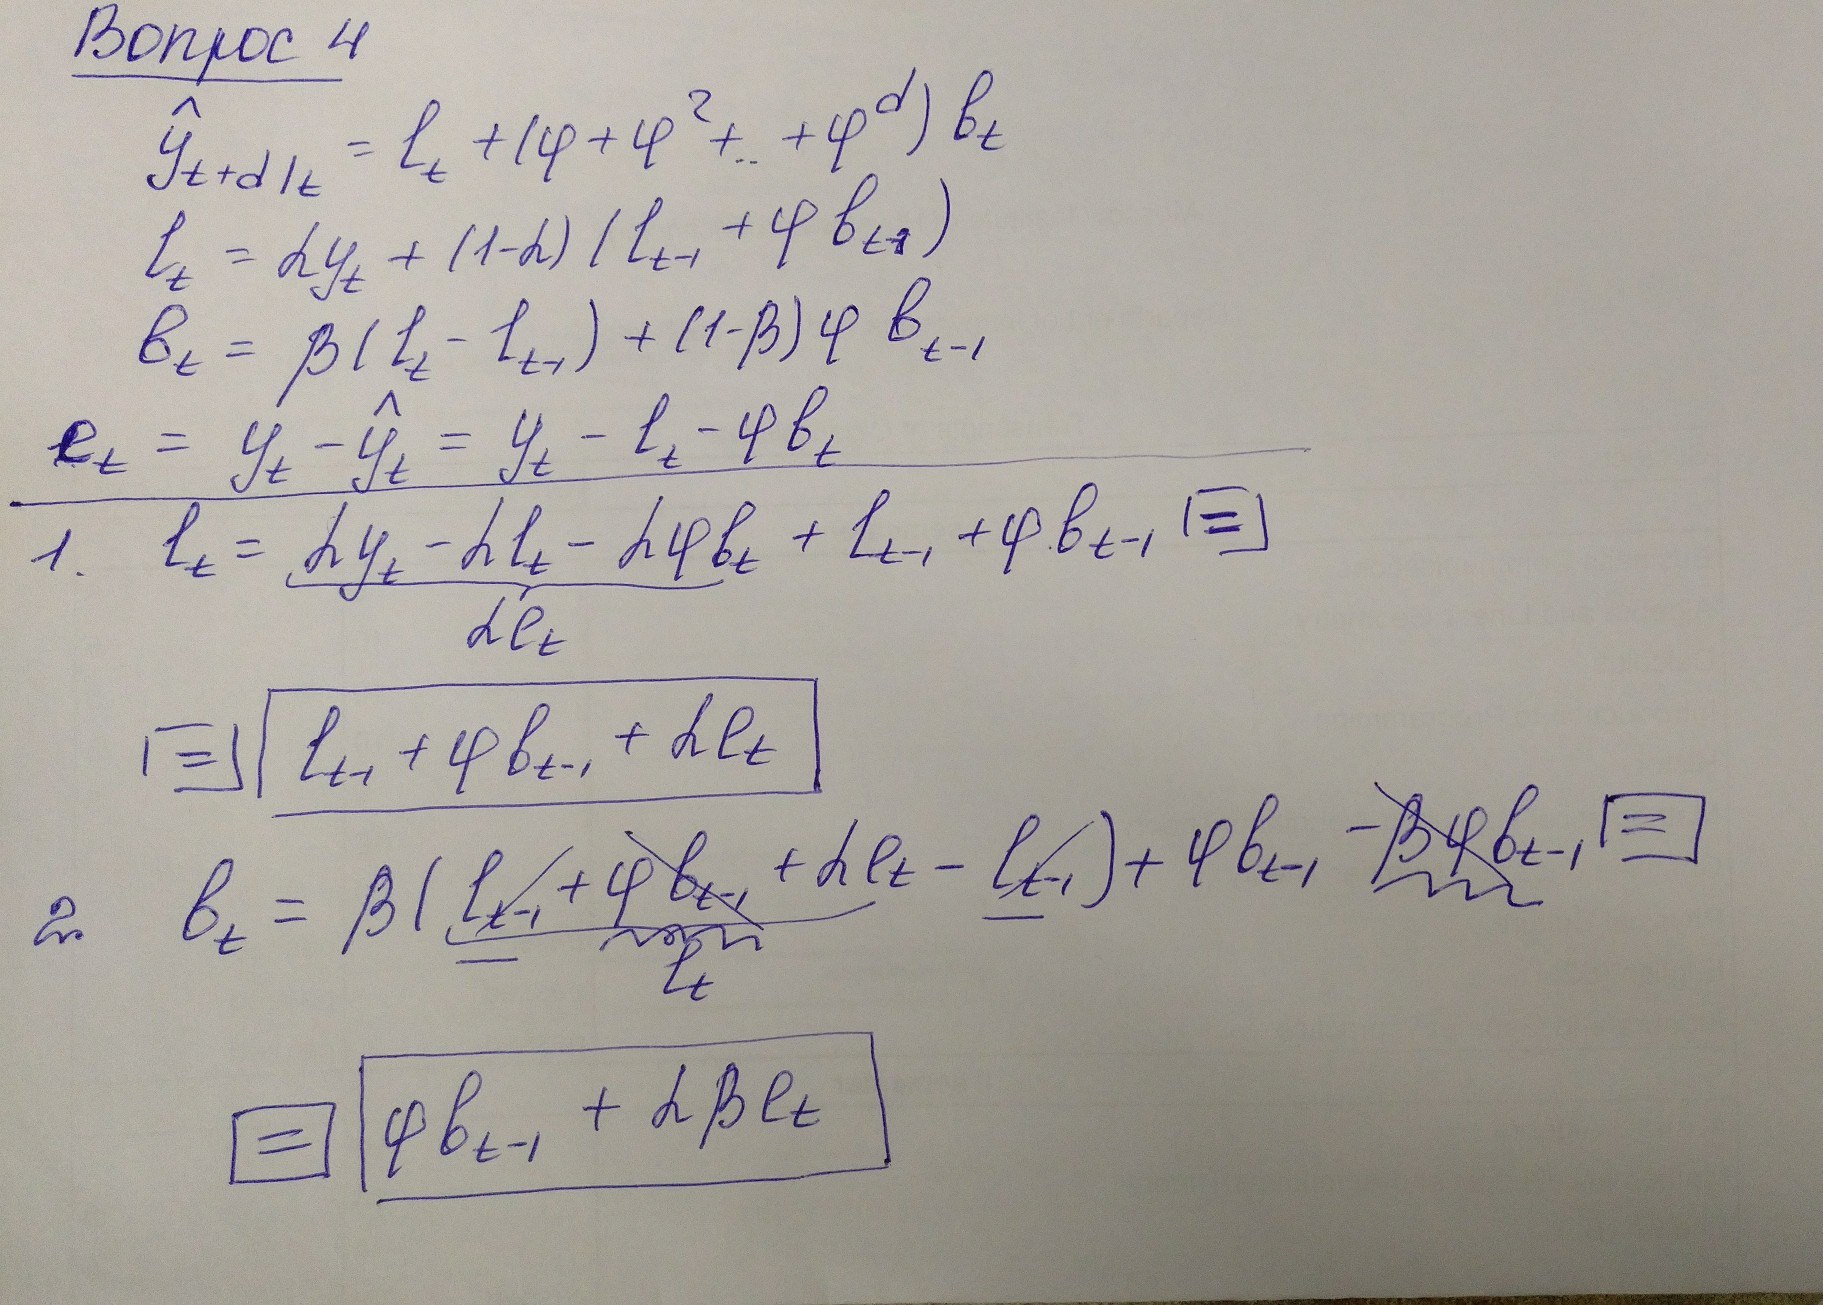 Вопрос 4
ŷ_{t+d|t} = l_t + (φ + φ² + .. + φ^d) b_t
l_t = αy_t + (1-α)(l_{t-1} + φ b_{t-1})
b_t = β(l_t - l_{t-1}) + (1-β)φ b_{t-1}
e_t = y_t - ŷ_t = y_t - l_t - φb_t
1. l_t = αy_t - αl_t - αφb_t + l_{t-1} + φb_{t-1} =
αe_t
= l_{t-1} + φb_{t-1} + αe_t
2. b_t = β(l_{t-1} + φb_{t-1} + αe_t - l_{t-1}) + φb_{t-1} - βφb_{t-1} =
l_t
= φb_{t-1} + αβe_t